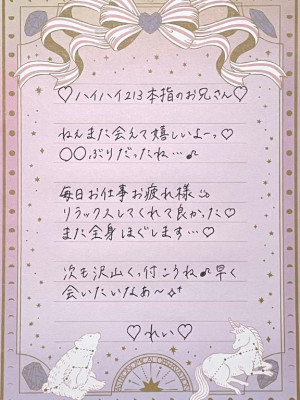 ♡ハイハイ213本指のお兄さん♡
ねんまた会えて嬉しいよーっ♡
○○ぶりだったね…♪
毎日お仕事お疲れ様
リラックスしてくれて良かった♡
また全身ほぐします…♡
次も沢山くっ付こうね♪早く
会いたいなあ〜
♡れい♡